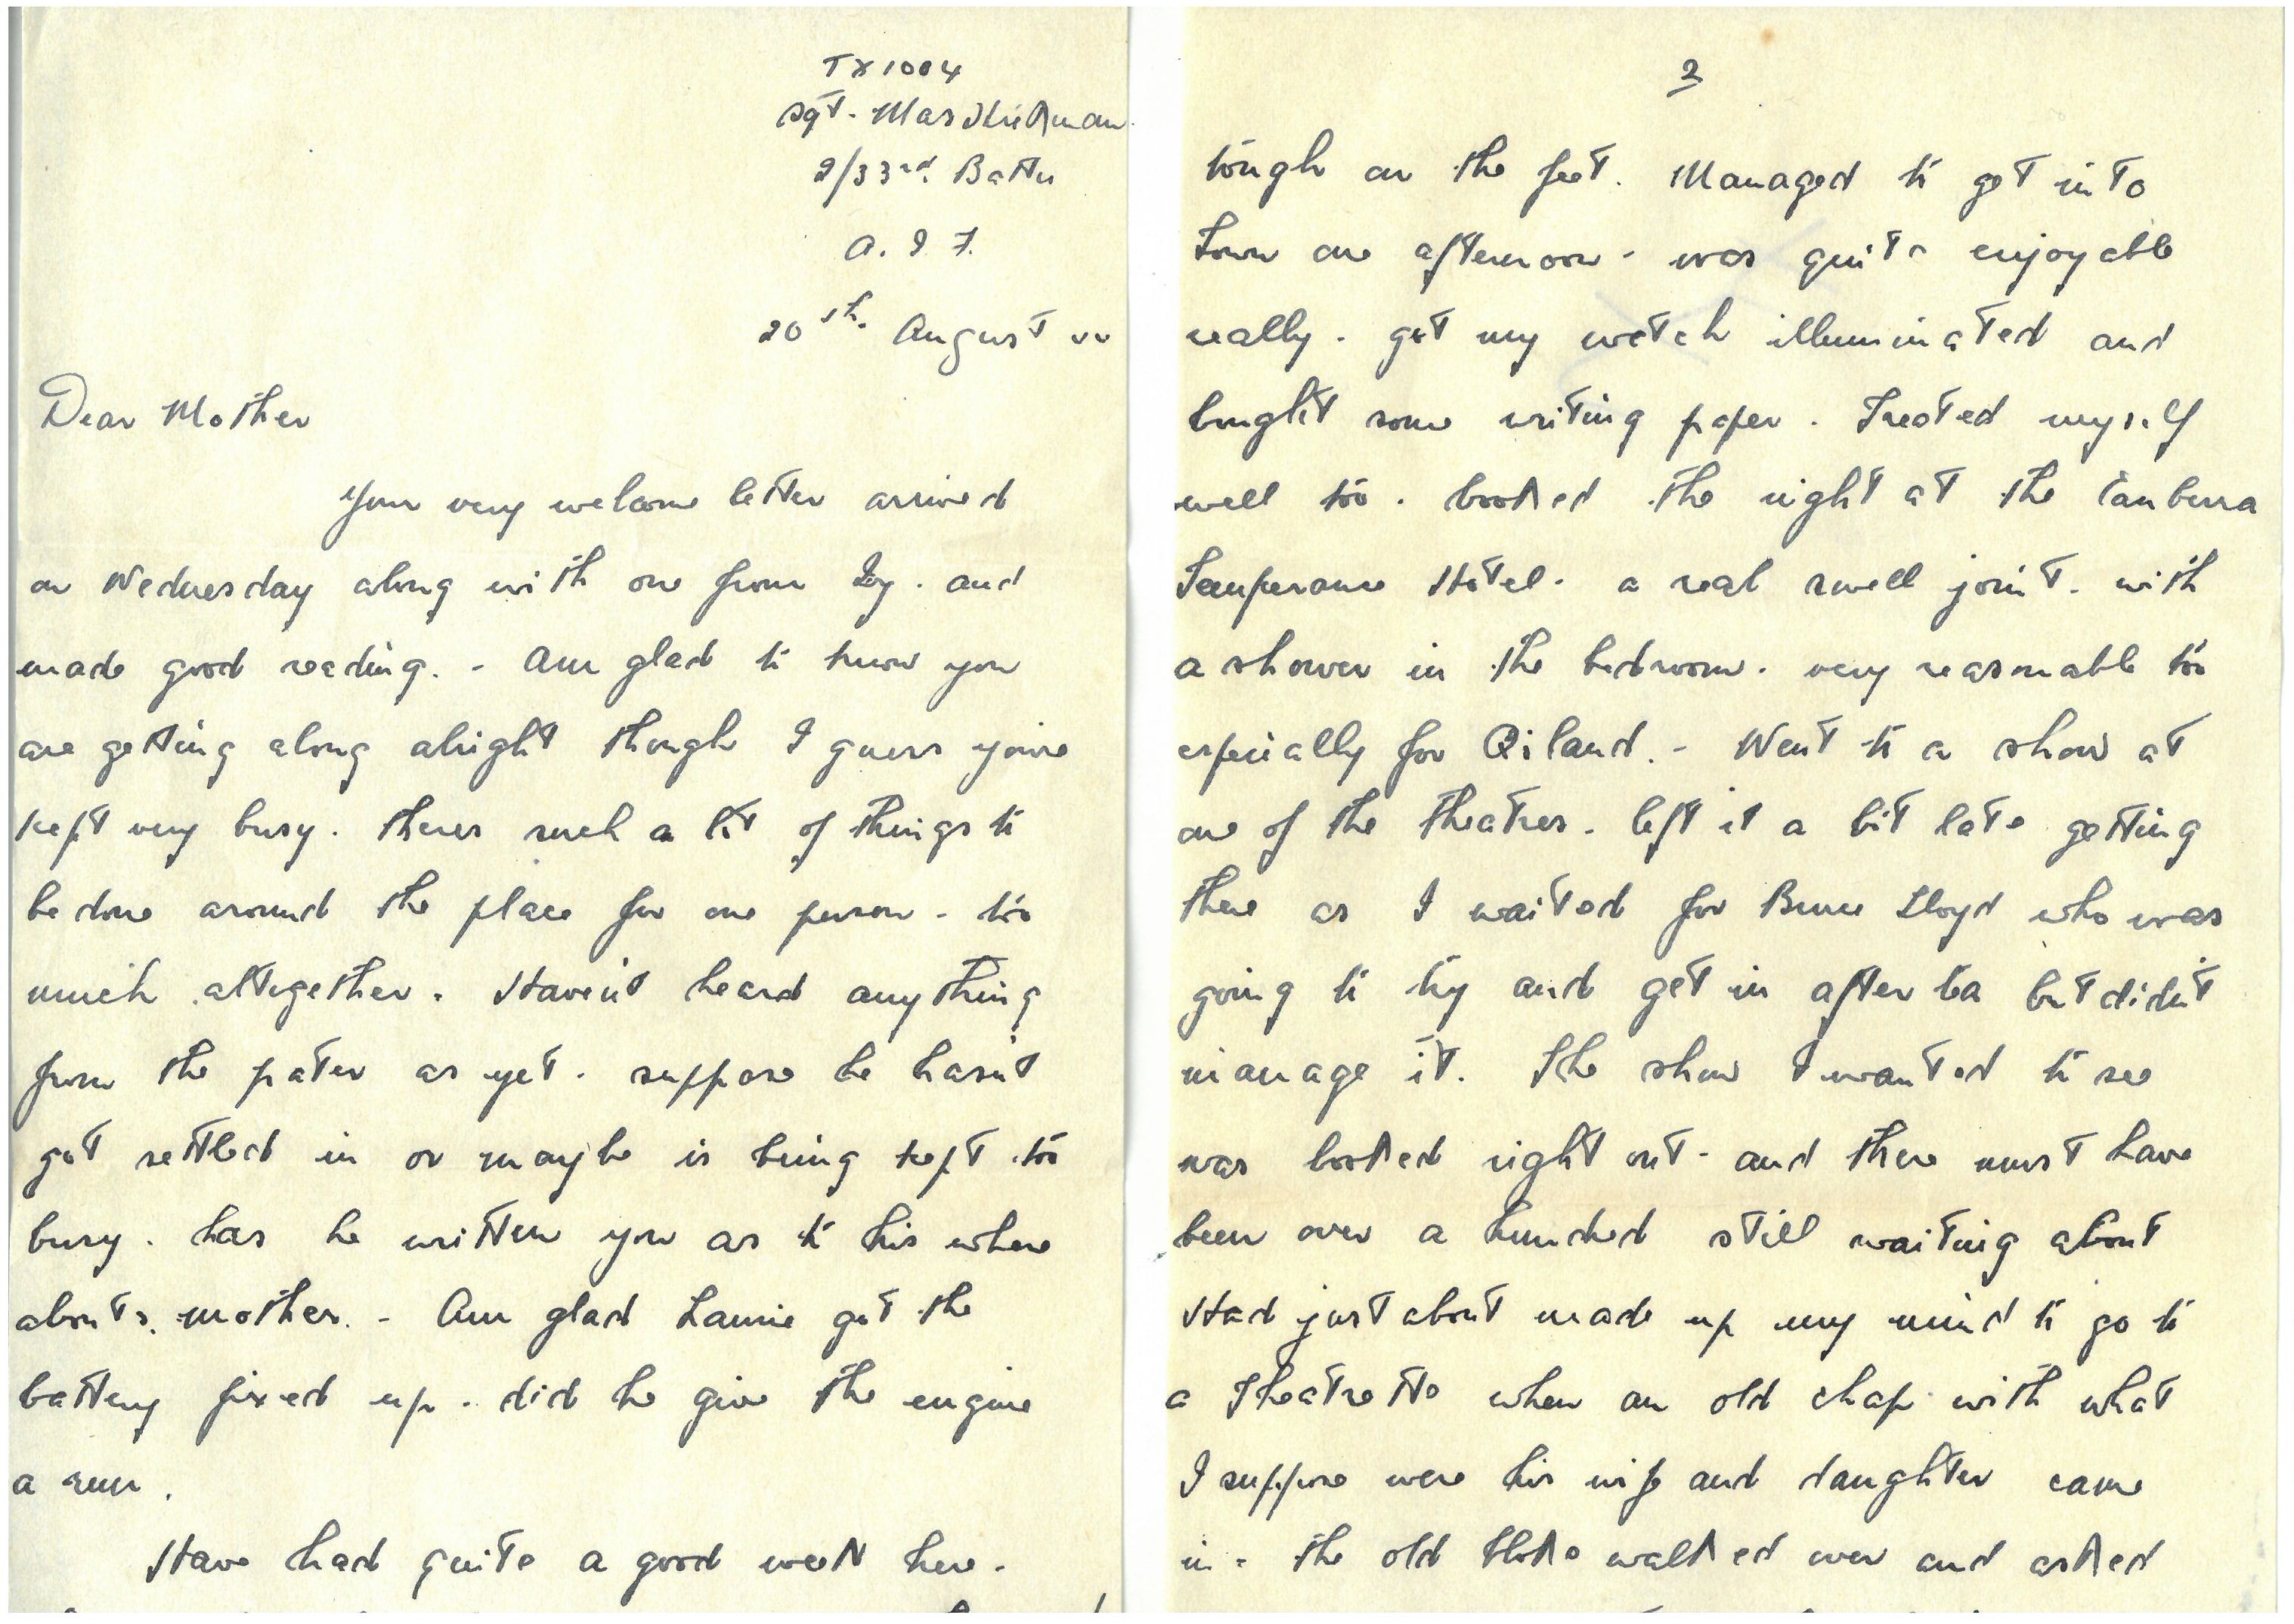 TX1004
Sgt. MacHickman.
2/33rd. Battn
A. I. F.
20th. August
Dear Mother
Your very welcome letter arrived
on Wednesday along with one from Joy. and
made good reading. - Am glad to know you
are getting along alright though I guess youre
kept very busy. theres such a lot of things to
be done around the place for one person - too
much altogether. Haven't heard anything
from the pater as yet. suppose he hasn't
got settled in or maybe is being kept too
busy. has he written you as to his where
abouts. mother. - Am glad Laurie got the
battery fixed up. did he give the engine
a run.
Have had quite a good week here.
2
tough on the feet. Managed to get into
town one afternoon - was quite enjoyable
really. got my watch illuminated and
bought some writing paper. Treated myself
well too. booked the night at the Canberra
Temperance Hotel. a real swell joint. with
a shower in the bedroom. very reasonable too
especially for Q'land. - Went to a show at
one of the theatres. left it a bit late getting
there as I waited for Bruce Lloyd who was
going to try and get in after tea but didn't
manage it. The show I wanted to see
was booked right out - and there must have
been over a hundred still waiting about
Had just about made up my mind to go to
a Theatrette when an old chap with what
I suppose were his wife and daughter came
in. the old bloke walked over and asked